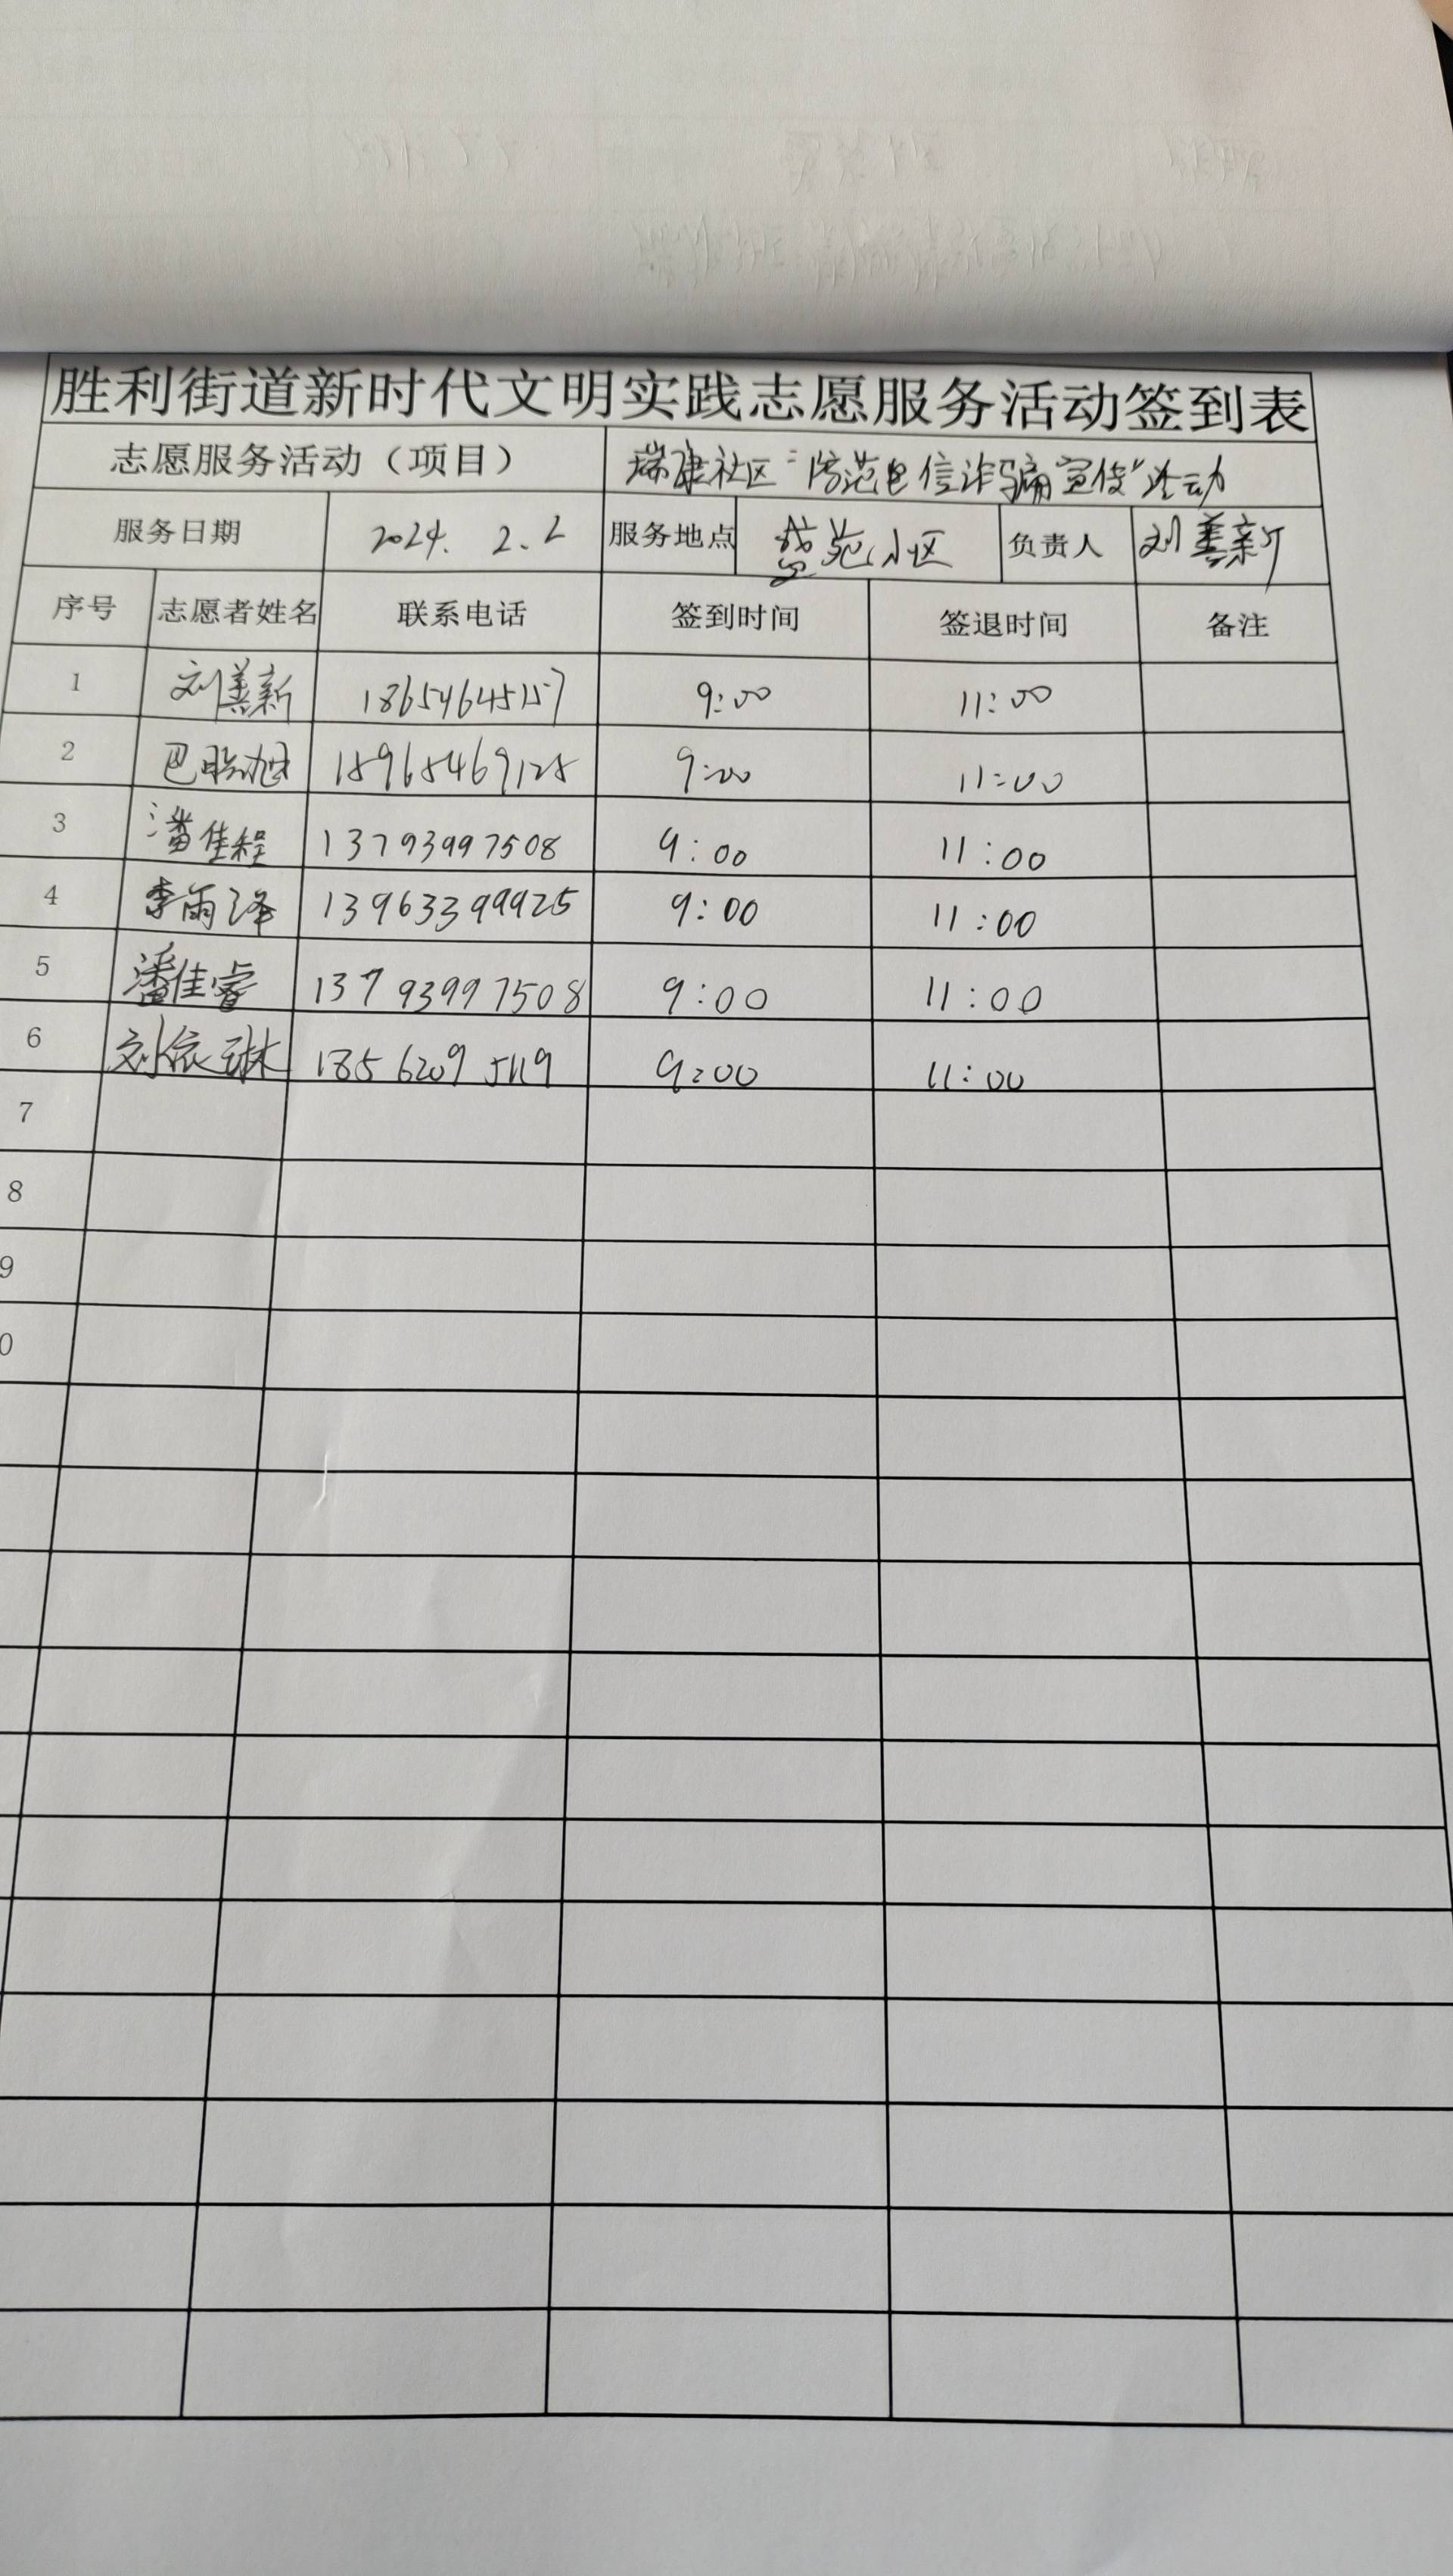 胜利街道新时代文明实践志愿服务活动签到表
志愿服务活动（项目） 瑞康社区“防范电信诈骗宣传”活动
服务日期 2024. 2.2 服务地点 苑小区 负责人 刘善新
序号 志愿者姓名 联系电话 签到时间 签退时间 备注
1 刘善新 18654645157 9:00 11:00
2 9:00 11:00
3 潘佳程 13793997508 9:00 11:00
4 李雨泽 13963399925 9:00 11:00
5 潘佳睿 13793997508 9:00 11:00
6 刘依琳 9:00 11:00
7
8
9
0